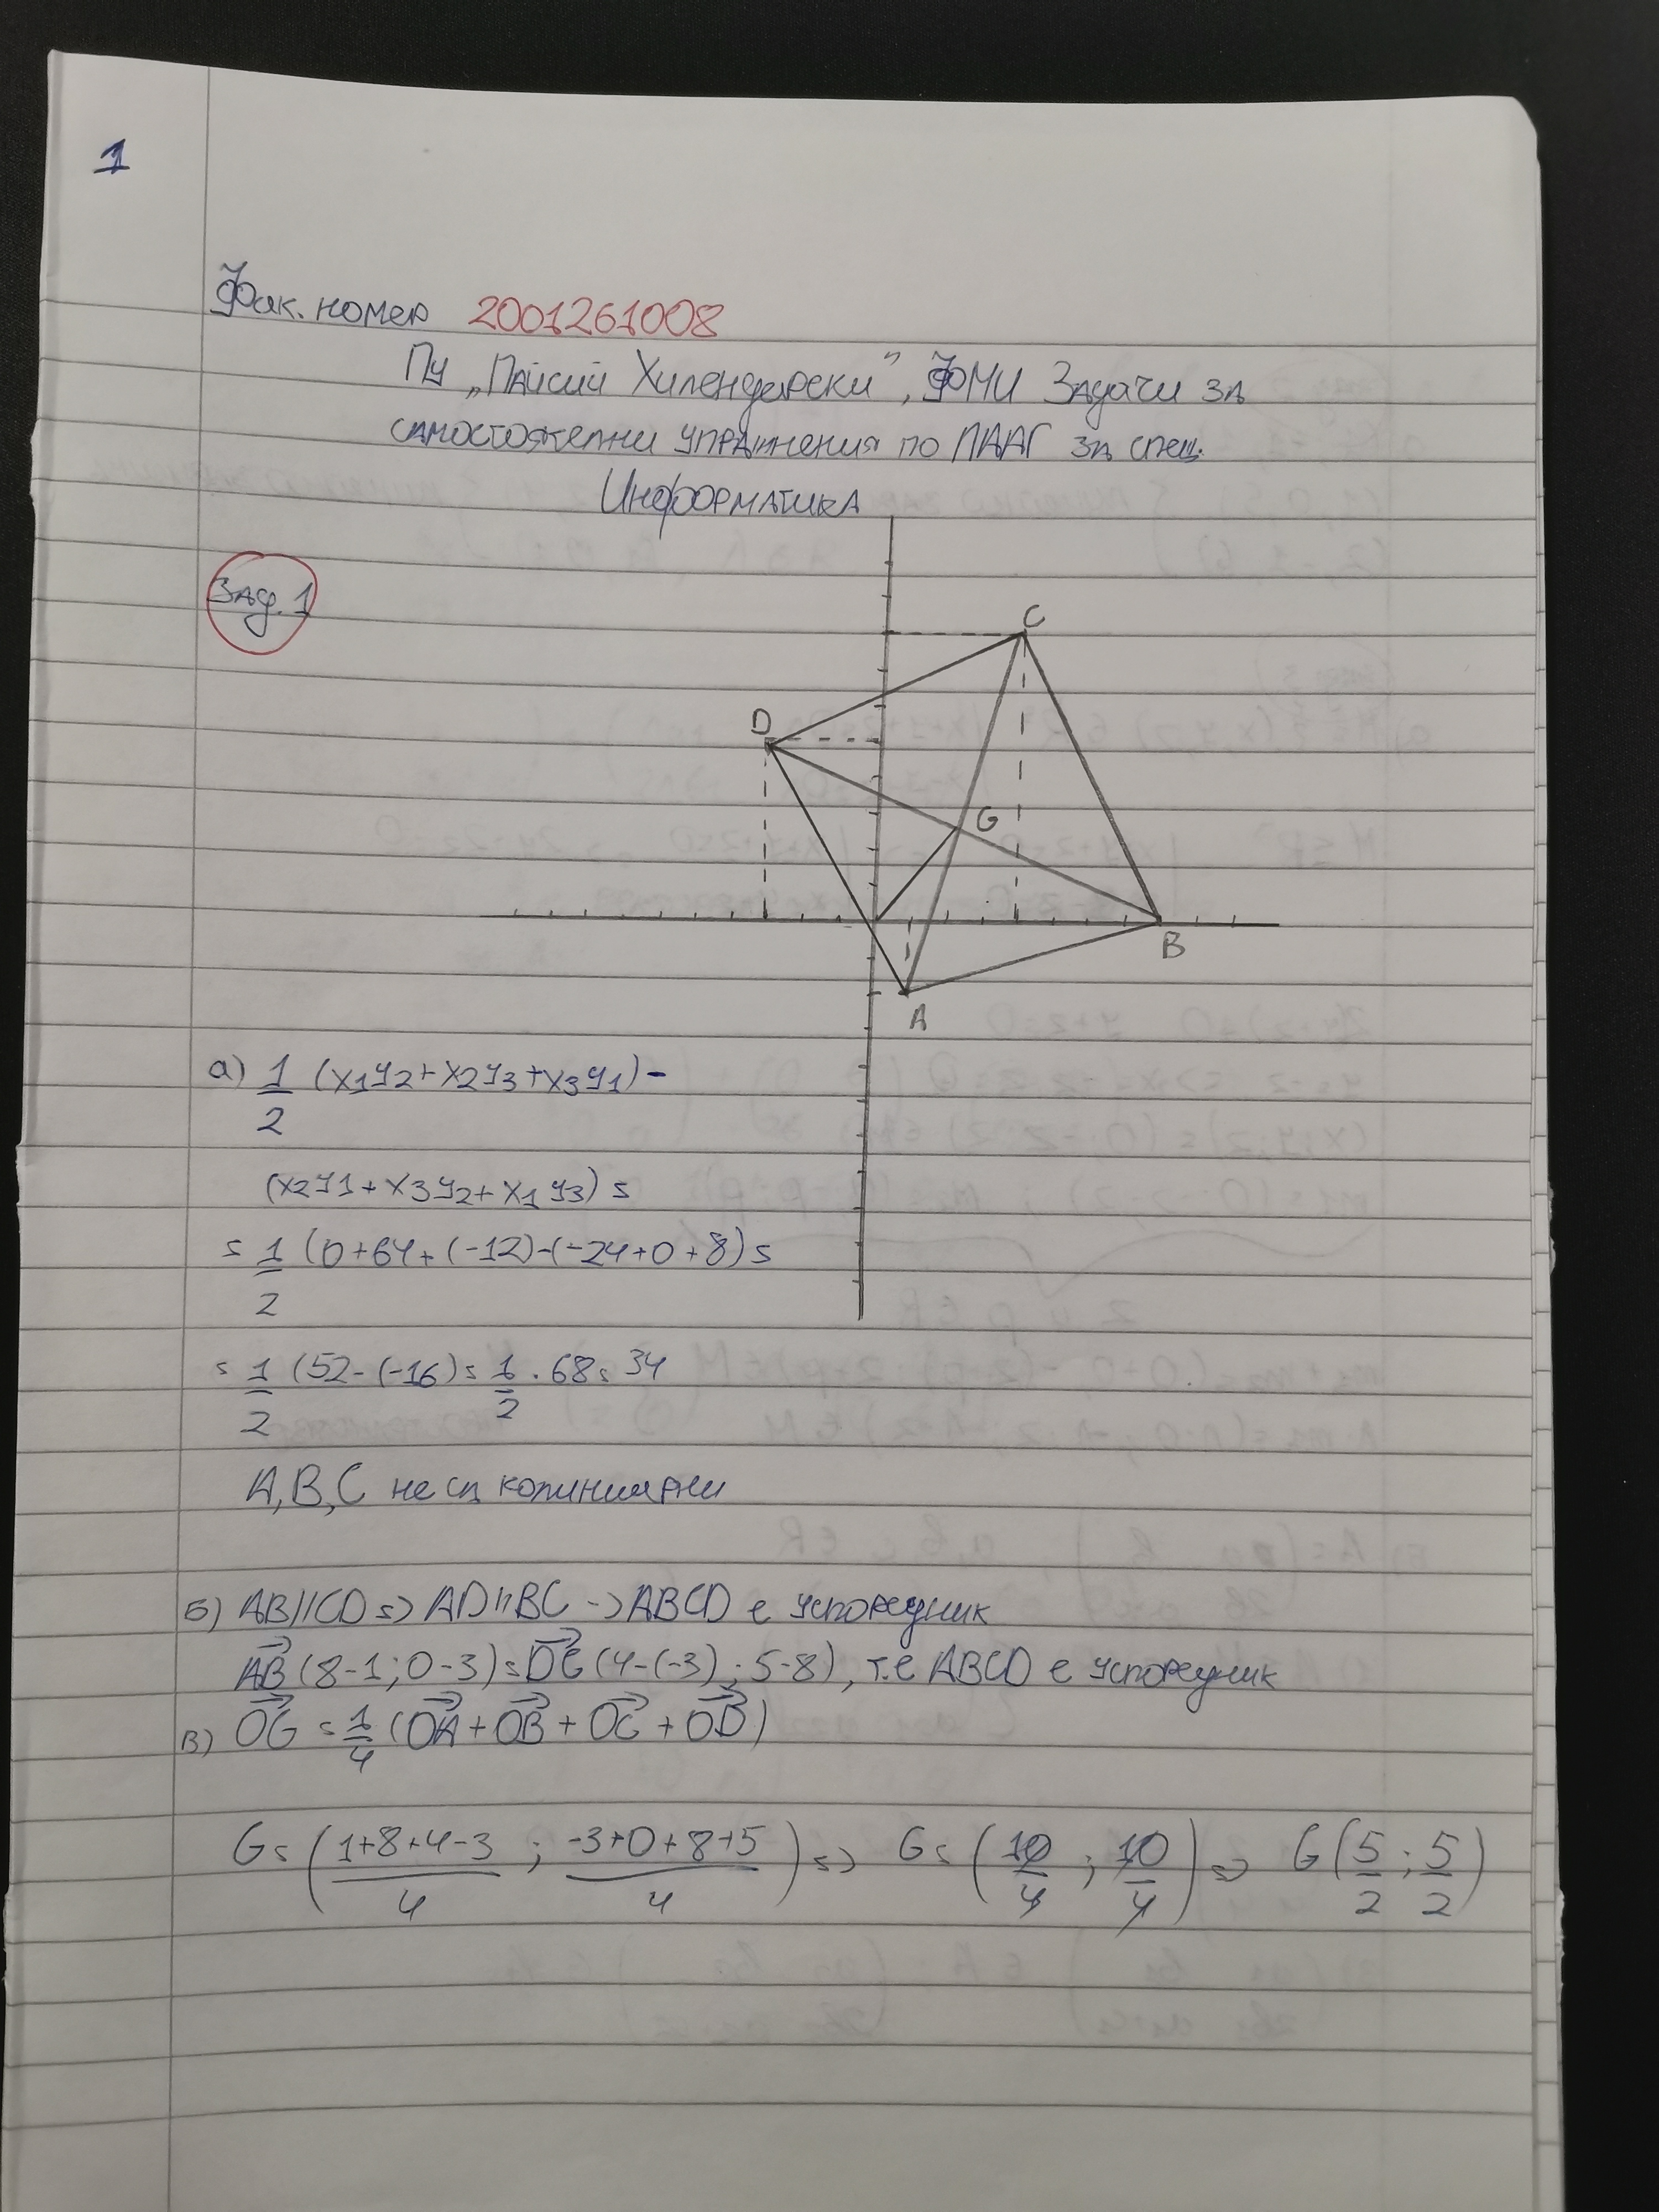 1
Фак. номер 2001261008
ПУ „Пайсий Хилендарски", ФМИ Задачи за
самостоятелни упражнения по ЛААГ за спец.
Информатика
Зад. 1
C
D
G
B
A
а) 1/2 (x1y2+x2y3+x3y1)-
(x2y1+x3y2+x1y3) =
= 1/2 (0+64+(-12)-(-24+0+8) =
= 1/2 (52-(-16) = 1/2 . 68 = 34
A, B, C не са колинеарни
Б) AB||CD => AD||BC -> ABCD е успоредник
AB→ (8-1; 0-3) = DC→ (4-(-3); 5-8), т.е ABCD е успоредник
В) OG→ = 1/4 (OA→ + OB→ + OC→ + OD→)
G = (1+8+4-3/4 ; -3+0+8+5/4) => G = (10/4 ; 10/4) => G (5/2 ; 5/2)